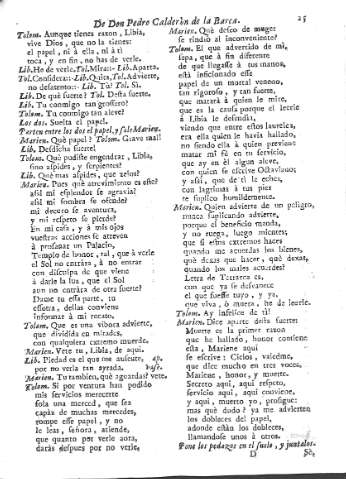 De Don Pedro Calderòn de la Barca. 25
Tolom. Aunque tienes razon, Libia,
vive Dios, que no la tienes:
el papel, ni à ella, ni à ti
toca, y en fin, no has de verle.
Lib. He de verle. Tol. Mira:- Lib. Aparta.
Tol. Considera:- Lib. Quita. Tol. Advierte,
no desatento:- Lib. Tù? Tol. Sì.
Lib. De què suerte? Tol. Desta suerte.
Lib. Tu conmigo tan grossero?
Tolom. Tu conmigo tan aleve?
Los dos. Suelta el papel.
Parten entre los dos el papel, y sale Marien.
Marien. Què papel? Tolom. Grave mal!
Lib. Desdicha fuerte!
Tolom. Què pudiste engendrar, Libia,
sino aspides, y serpientes?
Lib. Què mas aspides, que zelos?
Marien. Pues què atrevimiento es este?
assi mi esplendor se agravia?
assi mi sombra se ofende?
mi decoro se aventura,
y mi respeto se pierde?
En mi casa, y à mis ojos
vuestras acciones se atreven
à profanar un Palacio,
Templo de honor, tal, que à verle
el Sol no entrára, à no entrar
con disculpa de que viene
à darle la luz, que el Sol
aun no entrára de otra suerte?
Dame tu essa parte, tu
essotra, dellas conviene
informar à mi recato.
Tolom. Que es una vibora advierte,
que dividida en mitades,
con qualquiera extremo muerde.
Marien. Vete tu, Libia, de aqui.
Lib. Piedad es el que me ausente, ap.
por no verla tan ayrada. vase.
Marien. Tu tambien, què aguardas? vete.
Tolom. Si por ventura han podido
mis servicios merecerte
sola una merced, que sea
capàz de muchas mercedes,
rompe esse papel, y no
le leas, señora, atiende,
que quanto por verle aora,
daràs despues por no verle.
Marien. Què desco de muger
se rindiò al inconveniente?
Tolom. El que advertido de mi,
sepa, que à fin diferente
de que llegasse à tus manos,
està inficionado esse
papel de un mortal veneno,
tan rigoroso, y tan fuerte,
que matarà à quien le mire,
que es la causa porque el leerle
à Libia le defendia,
viendo que entre estos laureles,
era ella quien le havia hallado,
no siendo ella à quien previene
matar mi fè en tu servicio,
que ay en èl algun aleve,
con quien se escrive Octaviano;
y assi, que de ti le eches,
con lagrimas à tus pies
te suplico humildemente.
Marien. Quien advierte de un peligro,
nunca suplicando advierte,
porque el beneficio manda,
y no ruega, luego mientes;
que si estos extremos haces
quando me acuerdas los bienes,
què dexas que hacer, què dexas,
quando los males acuerdes?
Letra de Tetrarca es,
con que ya se desvanece
el que fuesse tuyo, y ya,
que viva, ò muera, he de leerle.
Tolom. Ay infelice de ti!
Marien. Dice aparte desta suerte:
Muerte es la primer razon
que he hallado, honor contiene
esta, Mariene aqui
se escrive: Cielos, valedme,
que dice mucho en tres voces,
Mariene, honor, y muerte.
Secreto aqui, aqui respeto,
servicio aqui, aqui conviene,
y aqui, muerto yo, prosigue:
mas què dudo? ya me advierten
los dobleces del papel,
adonde estàn los dobleces,
llamandose unos à otros.
Pone los pedazos en el suelo, y juntalos.
D Sè,